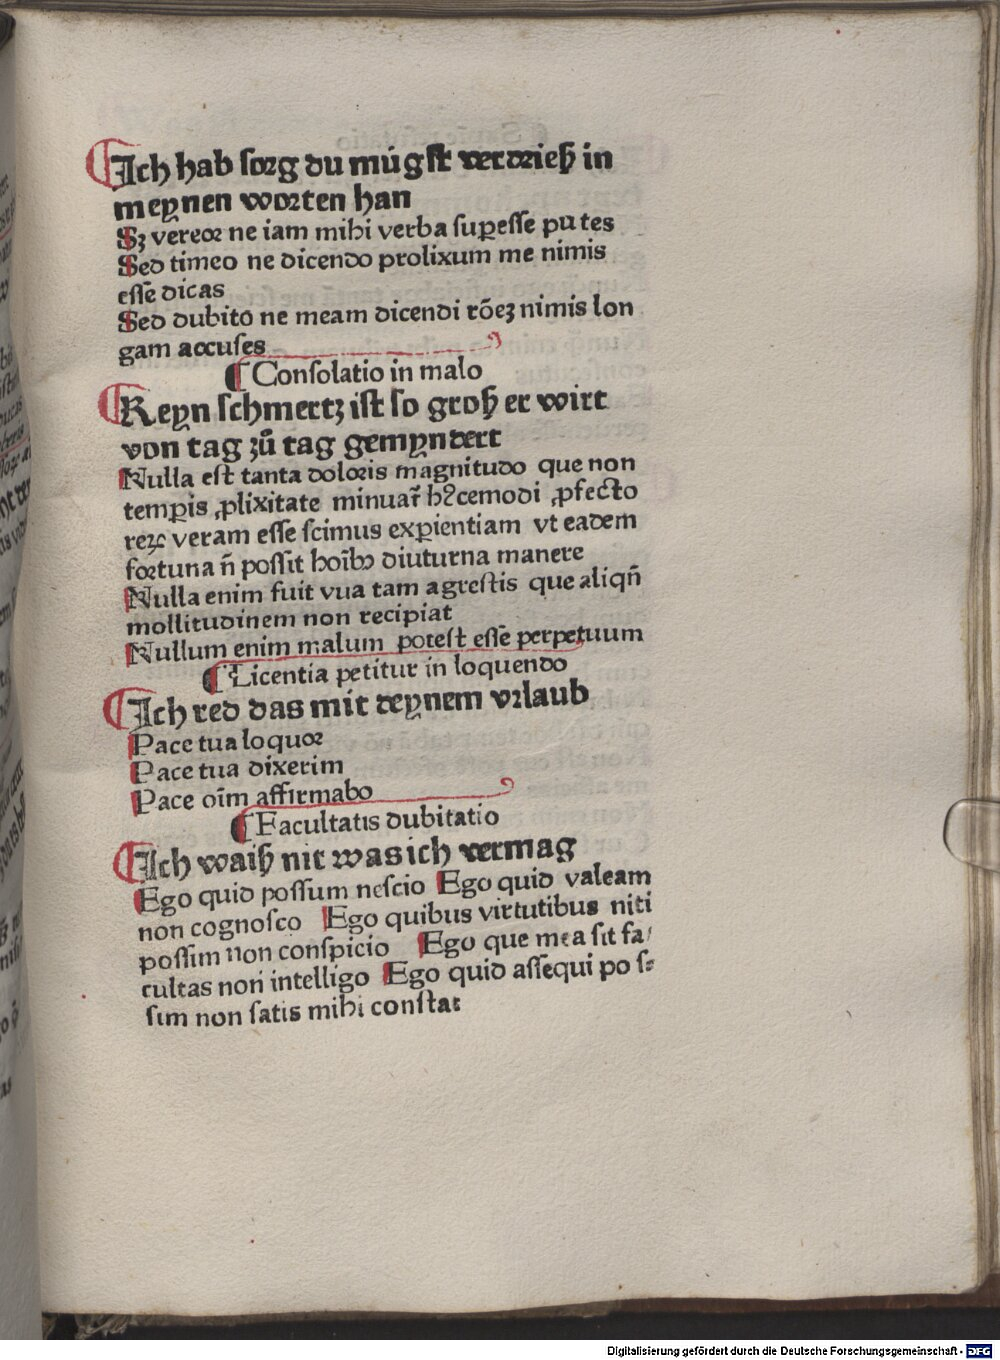 Ich hab sorg du múgst verdrieß in
meynen worten han
Sꝫ vereor ne iam mihi verba supesse putes
Sed timeo ne dicendo prolixum me nimis
esse dicas
Sed dubito ne meam dicendi rõeꝫ nimis lon
gam accuses
¶ Consolatio in malo
Keyn schmertz ist so groß er wirt
von tag zů tag gemyndert
Nulla est tanta doloris magnitudo que non
temꝑis ꝓlixitate minuat᷑ hꝰcemodi ꝓfecto
reꝝ veram esse scimus exꝑientiam vt eadem
fortuna ñ possit hoĩbꝰ diuturna manere
Nulla enim fuit vua tam agrestis que aliqñ
mollitudinem non recipiat
Nullum enim malum potest esse perpetuum
¶ Licentia petitur in loquendo
Ich red das mit deynem vrlaub
Pace tua loquor
Pace tua dixerim
Pace oĩm affirmabo
¶ Facultatis dubitatio
Ich waiß nit was ich vermag
Ego quid possum nescio Ego quid valeam
non cognosco Ego quibus virtutibus niti
possim non conspicio Ego que mea sit fa/
cultas non intelligo Ego quid assequi pos⸗
sim non satis mihi constat
Digitalisierung gefördert durch die Deutsche Forschungsgemeinschaft - DFG